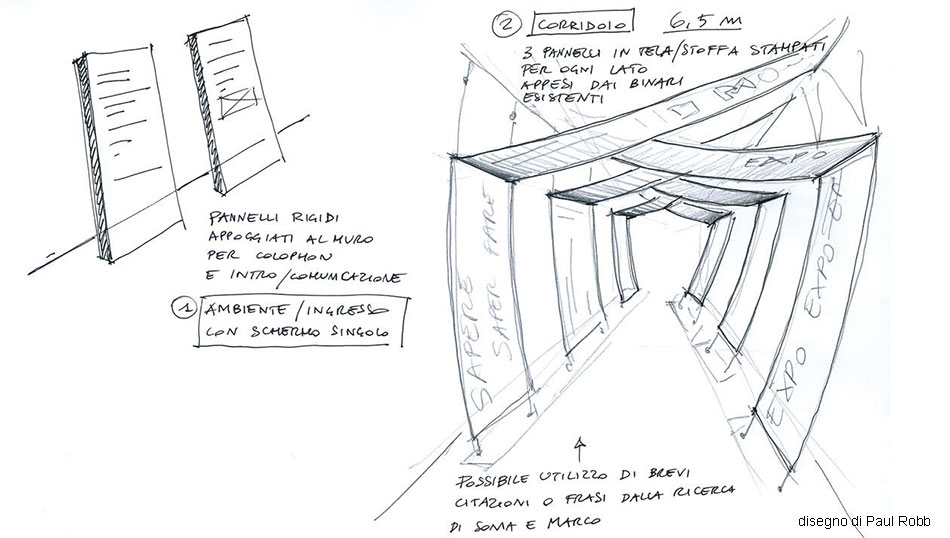 PANNELLI RIGIDI
APPOGGIATI AL MURO
PER COLOPHON
E INTRO/COMUNICAZIONE
1 AMBIENTE/INGRESSO
CON SCHERMO SINGOLO
2 CORRIDOIO 6,5 m
3 PANNELLI IN TELA/STOFFA STAMPATI
PER OGNI LATO
APPESI DAI BINARI
ESISTENTI
EXPO
SAPERE
SAPER FARE
EXPO EXPO
POSSIBILE UTILIZZO DI BREVI
CITAZIONI O FRASI DALLA RICERCA
DI SONIA E MARCO
disegno di Paul Robb